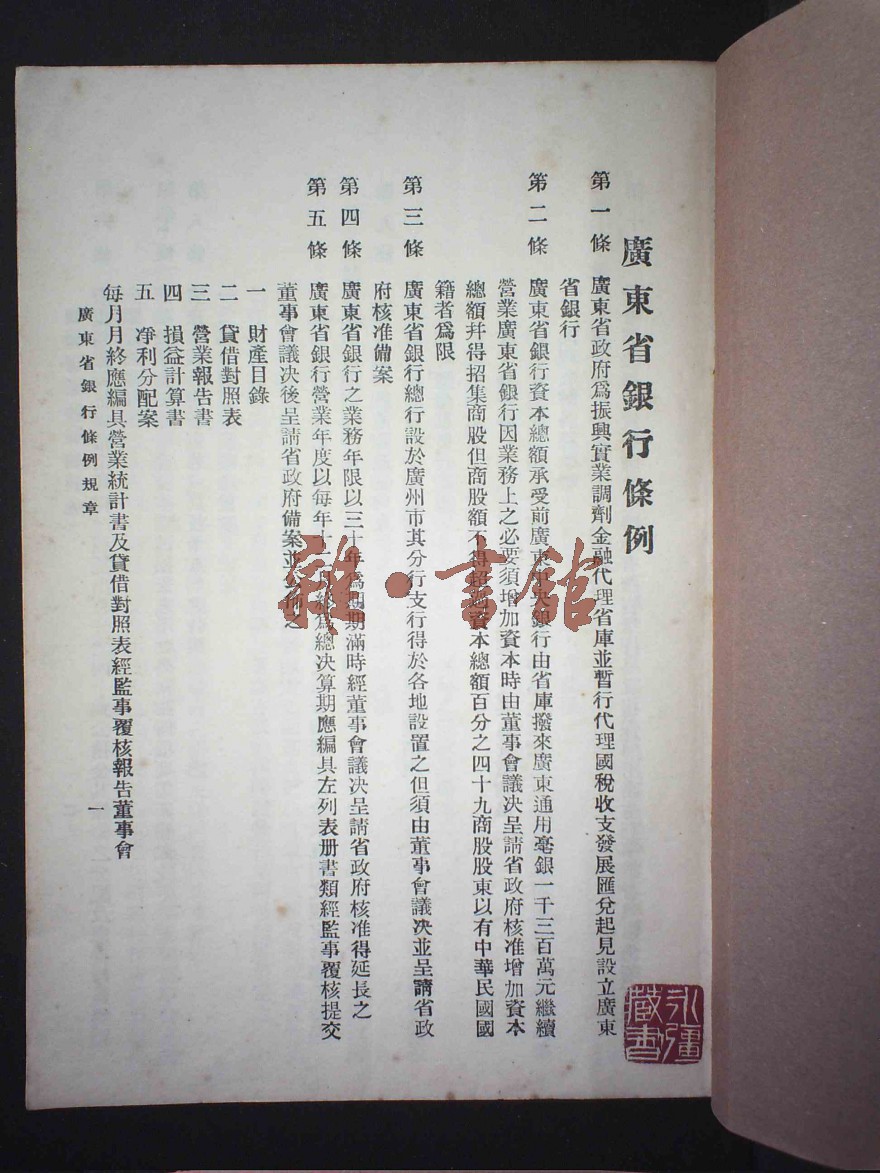 廣東省銀行條例
第一條 廣東省政府爲振興實業調劑金融代理省庫並暫行代理國稅收支發展匯兌起見設立廣東
省銀行
第二條 廣東省銀行資本總額承受前廣東中央銀行由省庫撥來廣東通用毫銀一千三百萬元繼續
營業廣東省銀行因業務上之必要須增加資本時由董事會議决呈請省政府核准增加資本
總額幷得招集商股但商股額不得超過資本總額百分之四十九商股股東以有中華民國國
籍者爲限
第三條 廣東省銀行總行設於廣州市其分行支行得於各地設置之但須由董事會議决並呈請省政
府核准備案
第四條 廣東省銀行之業務年限以三十年爲期期滿時經董事會議决呈請省政府核准得延長之
第五條 廣東省銀行營業年度以每年十二月終爲總决算期應編具左列表册書類經監事覆核提交
董事會議决後呈請省政府備案並公佈之
一 財產目錄
二 貸借對照表
三 營業報告書
四 損益計算書
五 净利分配案
每月月終應編具營業統計書及貸借對照表經監事覆核報告董事會
廣東省銀行條例規章
一
雜·書館
永彊
藏書